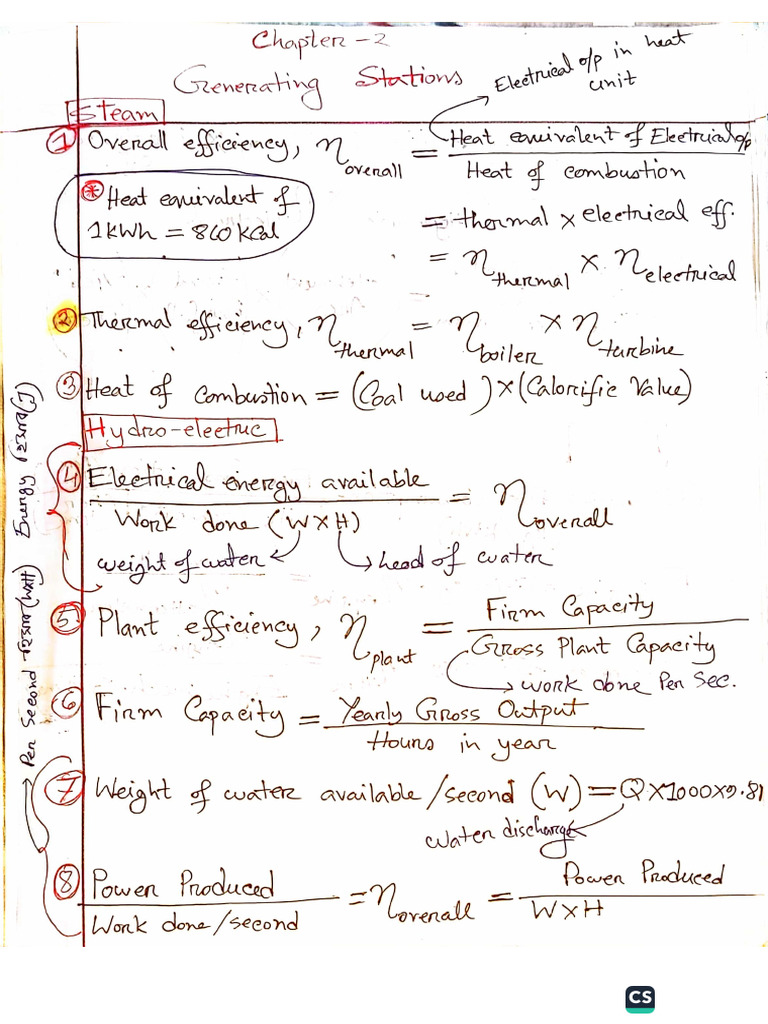 Chapter-2
Generating Stations
Electrical o/p in heat unit
Steam
① Overall efficiency, η overall = Heat equivalent of Electrical o/p / Heat of combustion
= thermal × electrical eff.
= η thermal × η electrical
* Heat equivalent of
1 kWh = 860 kCal
② Thermal efficiency, η thermal = η boiler × η turbine
③ Heat of combustion = (Coal used) × (Calorific Value)
Hydro-electric
④ Electrical energy available / Work done (W×H) = η overall
weight of water
head of water
⑤ Plant efficiency, η plant = Firm Capacity / Gross Plant Capacity
work done Per Sec.
⑥ Firm Capacity = Yearly Gross Output / Hours in year
⑦ Weight of water available/second (W) = Q×1000×9.81
water discharge
⑧ Power Produced / Work done/second = η overall = Power Produced / W×H
Per Second হিসাব (W×H)
Energy হিসাব (J)
CS